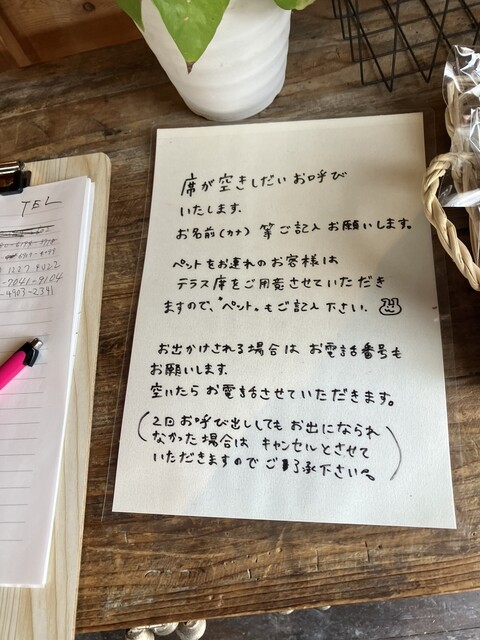 席が空きしだい お呼び
いたします.
お名前(カナ) 等ご記入 お願いします.
ペットをお連れのお客様は
テラス席をご用意させていただき
ますので、"ペット"もご記入下さい.
お出かけされる場合は お電話番号も
お願いします.
空いたらお電話させていただきます。
(2回お呼び出ししても お出になられ
なかった場合は キャンセルとさせて
いただきますので ご了承下さい)
TEL
1227-4122
-7041-9104
-4903-2391